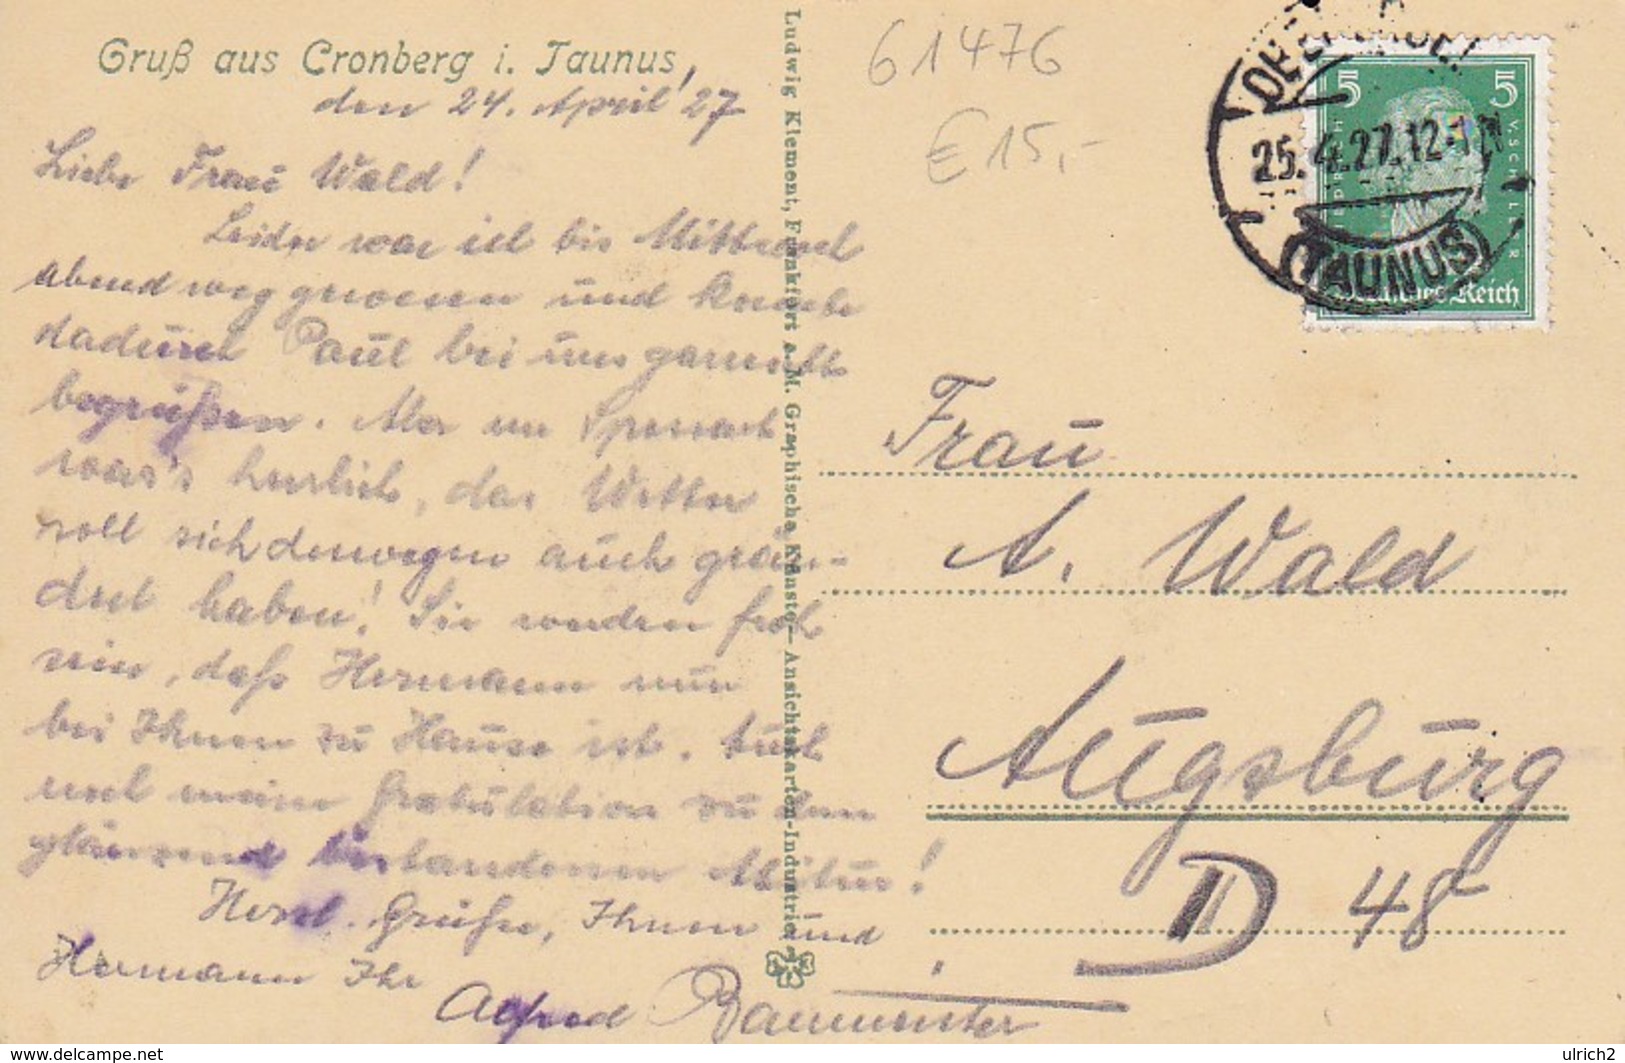 Gruß aus Cronberg i. Taunus,
den 24. April '27
Liebe Frau Wald!
Leider war ich bis Mittwoch
abend weg gewesen und konnte
dadurch Paul bei uns garnicht
begrüßen. Aber im Spessart
war's herrlich, das Wetter
soll sich deswegen auch geän-
dert haben! Sie werden froh
sein, daß Hermann nun
bei Ihnen zu Hause ist. Auch
noch meine Gratulation zu dem
glänzend bestandenen Abitur!
Herzl. Grüße, Ihnen und
Hermann Ihr
Alfred Baumeister
Ludwig Klement, Frankfurt a. M. Graphische Kunst- Ansichtskarten-Industrie
61476
€15,-
5 5
25.4.27.12-1N
(TAUNUS)
Deutsches Reich
Frau
A. Wald
Augsburg
D 48
delcampe.net
ulrich2